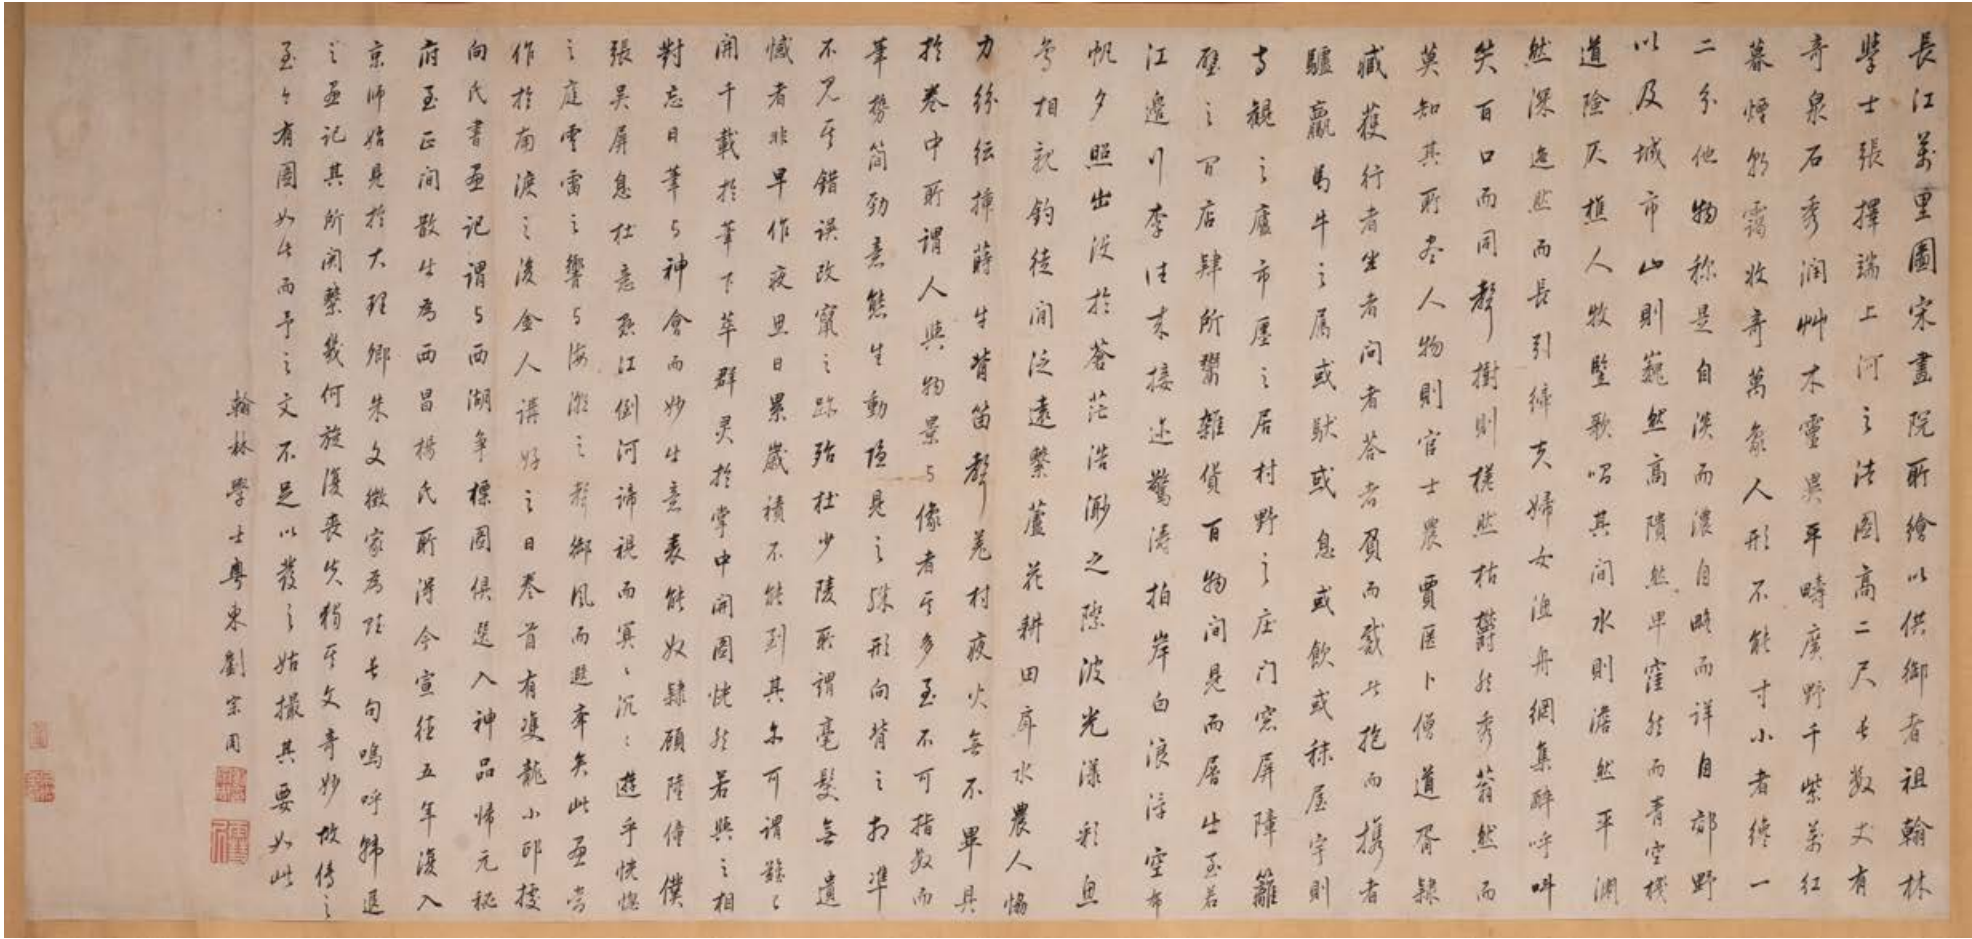 長江萬里圖宋畫院所繪以供御者祖翰林
學士張擇端上河之法圖高二尺長数丈有
奇泉石秀潤艸木靈異平疇廣野千紫萬紅
暮煙朝靄收奇萬象人形不能寸小者纔一
二分他物称是自淡而濃自略而详自郊野
以及城市山則巍然高隤然卑窪然而青空棧
道险仄樵人牧竪歌唱其间水則澹然平渊
然深迤然而長引綿夫婦女渔舟網集酔呼叫
笑百口而同聲樹則槎然枯欝然秀蓊然而
莫知其所尽人物則官士農賈医卜僧道胥隸
臧獲行者坐者问者荅者負而戴者抱而携者
驢驘馬牛之属或馱或息或飲或秣屋宇則
寺観之廬市廛之居村野之庄门窓屏障籬
壁之间店肆所鬻雑货百物间見而層出至若
江邉行李往来接迹驚涛拍岸白浪浮空布
帆夕照出没於蒼茫浩渺之際波光漾彩魚
鳥相親钓徒间泛遠繫蘆花耕田戽水農人恊
力紛紜揷蒔牛背笛聲荒村夜火無不畢具
於卷中所謂人與物景与像者其多至不可指数而
筆勢简劲意態生動隐見之殊形向背之相準
不見其錯误改竄之跡殆杜少陵所謂毫髪無遺
憾者非早作夜思日累歳積不能到其亦可谓難〻
開千載於筆下萃群灵於掌中開圖恍然若與之相
對忘日筆与神會而妙生意表能奴隸顾陸僮僕
張吴屏息杜意翻江倒河諦視而冥〻沉〻遊乎恍惚
之庭雲雷之響与海濤之聲御風而遐奔矣此画當
作於南渡之後金人講好之日卷首有雙龍小印據
向氏書画記谓与西湖争標图俱選入神品帰元秘
府至正间散出為西昌楊氏所得今宣徳五年復入
京师始見於大理卿朱文徵家為陸長句鳴呼歸進
之画記其所関繫幾何旋復喪失独其文奇妙故傳之
至今有圖如此而予之文不足以發之姑撮其要如此
翰林學士粤東劉宗周